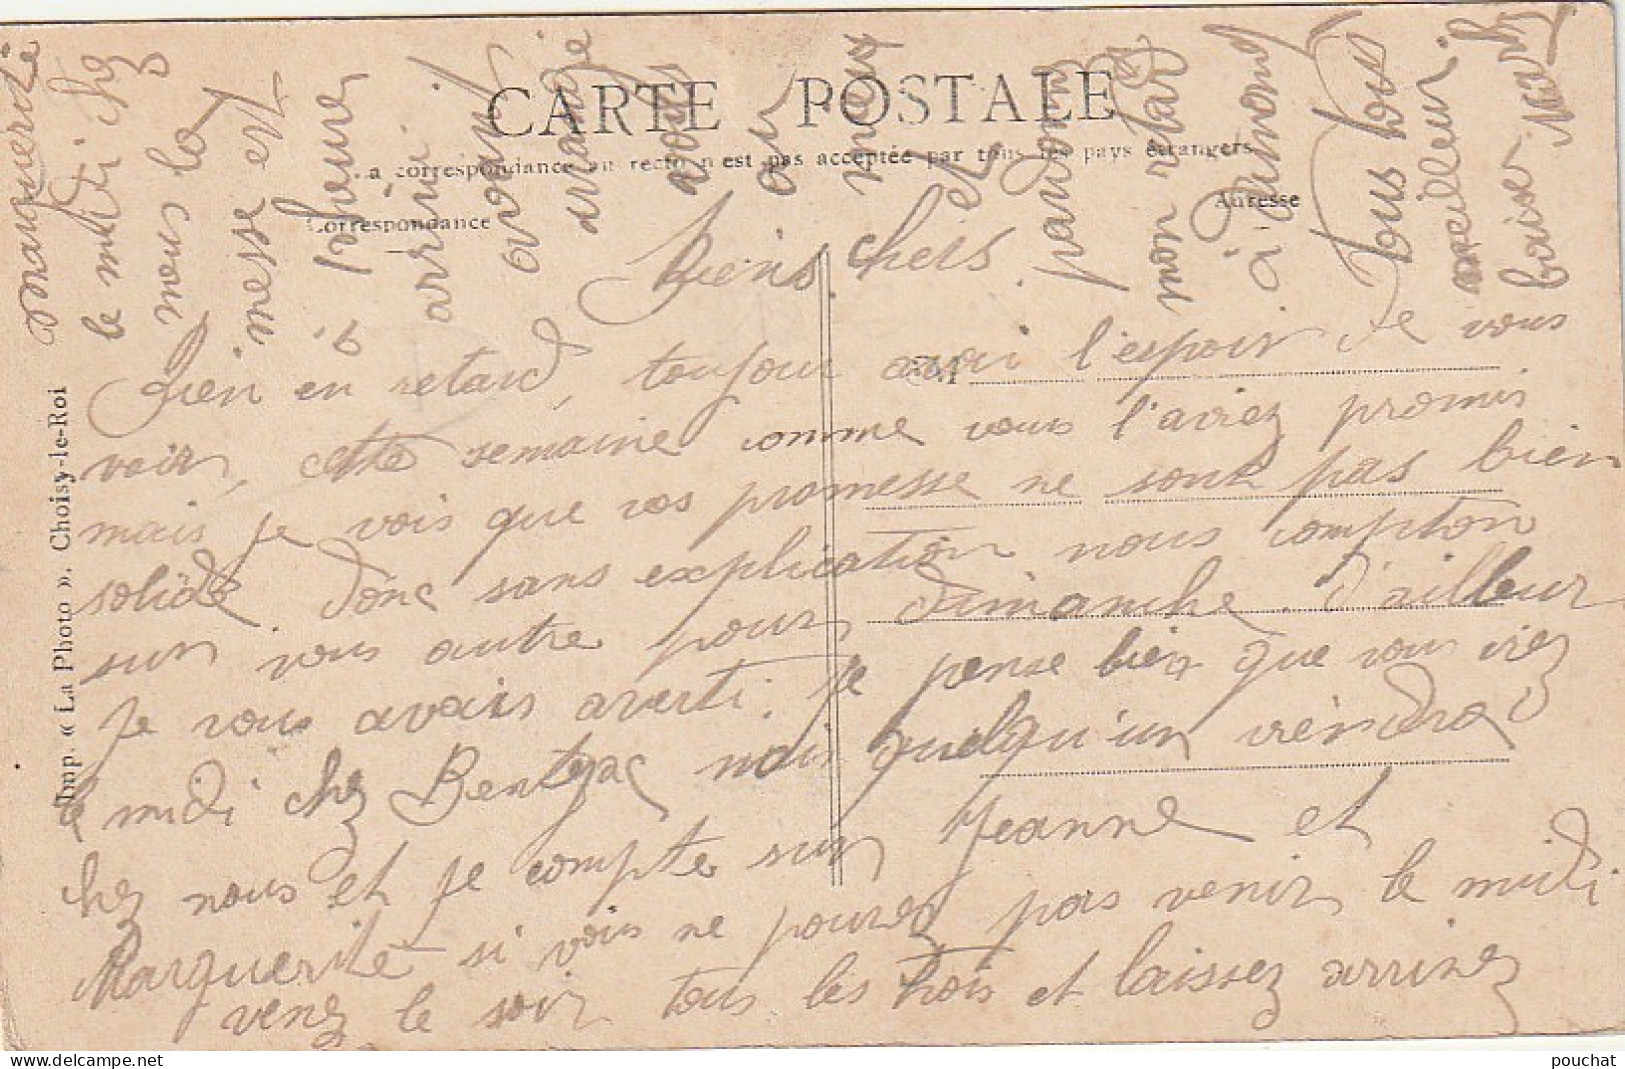 CARTE POSTALE
La correspondance au recto n'est pas acceptée par tous les pays étrangers
Correspondance
Adresse
Imp. « La Photo ». Choisy-le-Roi
Biens chers
Bien en retard, toujour avai l'espoir de vous
voir, cette semaine comme vous l'aviez promis
mais je vois que vos promesse ne sont pas bien
solide donc sans explication nous compton
sur vous autre pour dimanche. d'ailleur
je vous avais averti. Je pense bien que vous irez
le midi chez Bentzac mais quelqu'un viendra
chez nous et je compte sur Jeanne et
Marguerite si vous ne pouvez pas venir le midi
venez le soir tous les trois et laissez arriver
marguerite
le midi chez
nous la
messe est
à 11 heure
arrivé
avant
mangé
vous
ou
non
et
pardonn
mon retard
à dimanche
Tous nos
meilleur
baiser Mary
pouchat